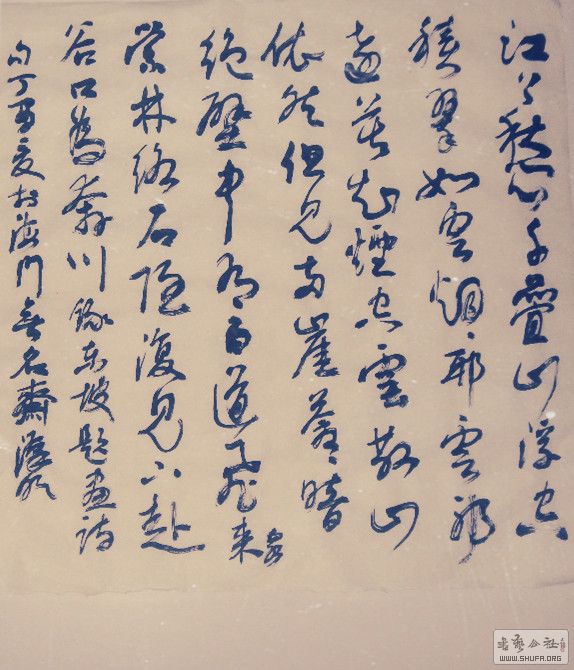 江上愁心千疊山浮空
積翠如雲烟耶雲耶
遠莫知煙空雲散山
依然但見兩崖蒼〻暗
絕壁中有百道飛來泉
縈林絡石隱復見下赴
谷口為奔川錄東坡題畫詩
句丁酉夏於海門無名齋
書藝公社
WWW.SHUFA.ORG